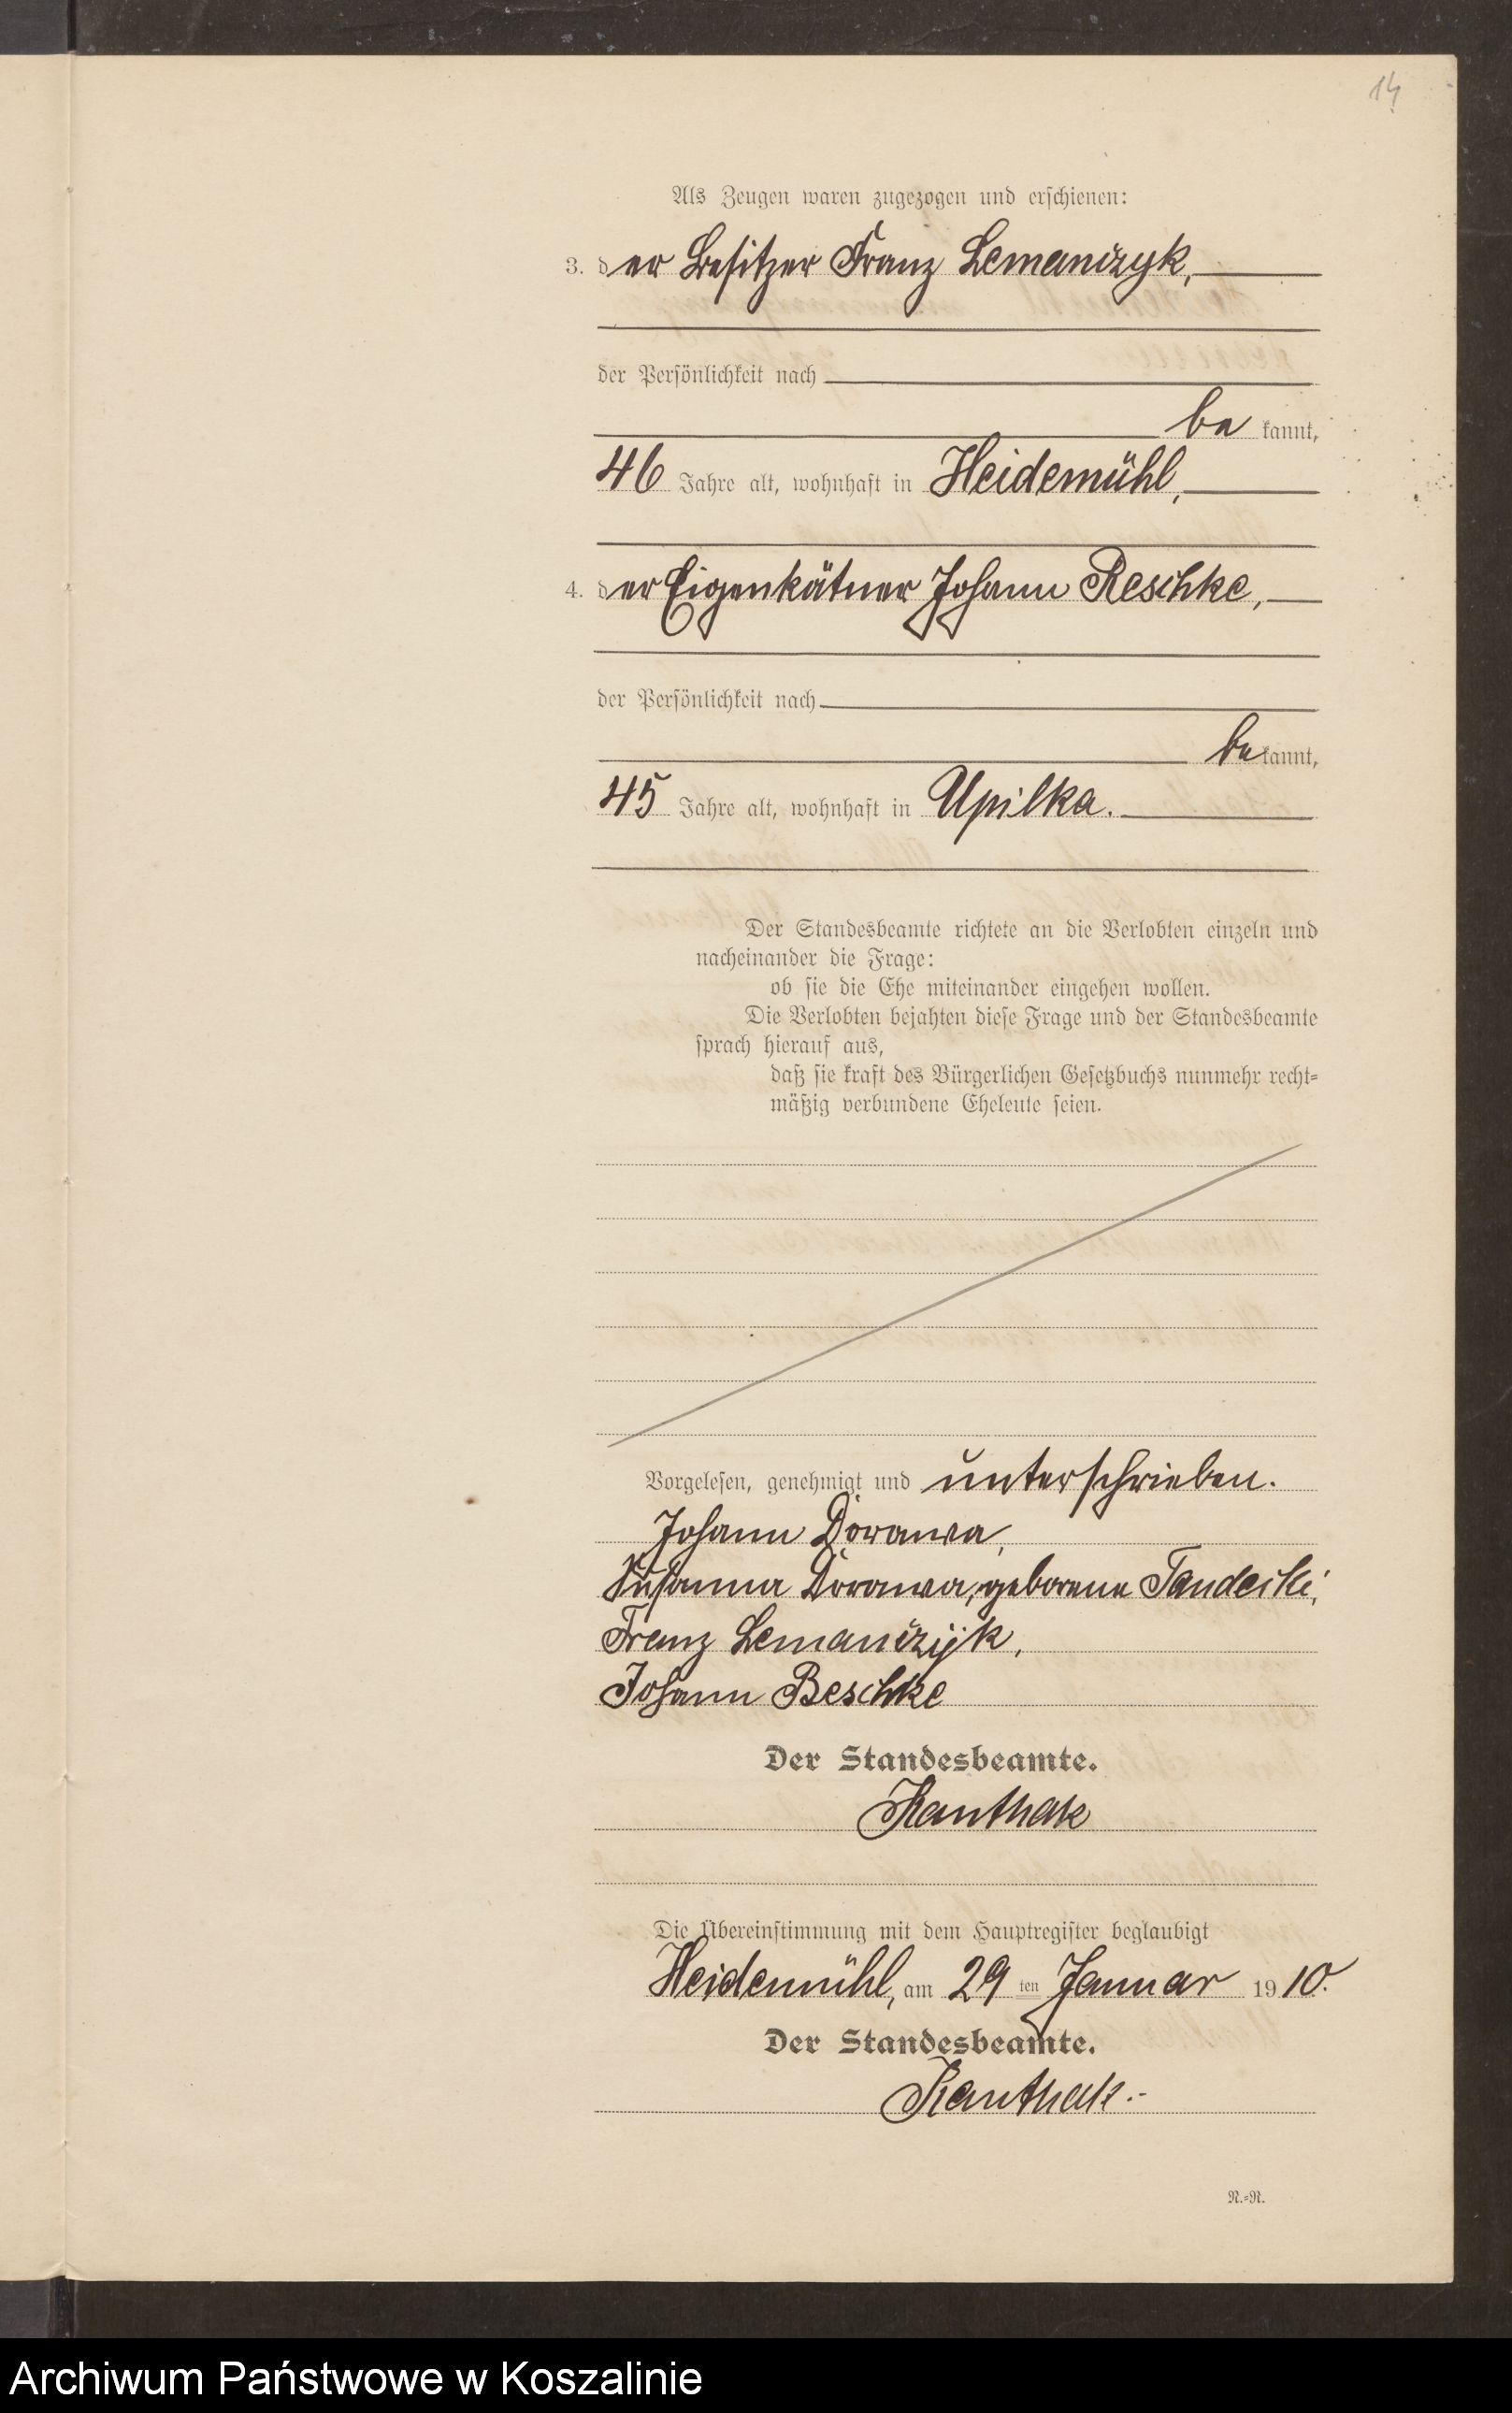 14
Als Zeugen waren zugezogen und erschienen:
3. der Besitzer Franz Lemanczyk,
der Persönlichkeit nach
bekannt,
46 Jahre alt, wohnhaft in Heidemühl,
4. der Eigenkätner Johann Reschke,
der Persönlichkeit nach
bekannt,
45 Jahre alt, wohnhaft in Upilka.
Der Standesbeamte richtete an die Verlobten einzeln und
nacheinander die Frage:
ob sie die Ehe miteinander eingehen wollen.
Die Verlobten bejahten diese Frage und der Standesbeamte
sprach hierauf aus,
daß sie kraft des Bürgerlichen Gesetzbuchs nunmehr recht-
mäßig verbundene Eheleute seien.
Vorgelesen, genehmigt und unterschrieben.
Johann Dorawa,
Susanna Dorawa, geborene Tandecki,
Franz Lemanczyk,
Johann Reschke
Der Standesbeamte.
Kanthak
Die Übereinstimmung mit dem Hauptregister beglaubigt
Heidemühl, am 29 ten Januar 1910.
Der Standesbeamte.
Kanthak.-
N.-R.
Archiwum Państwowe w Koszalinie